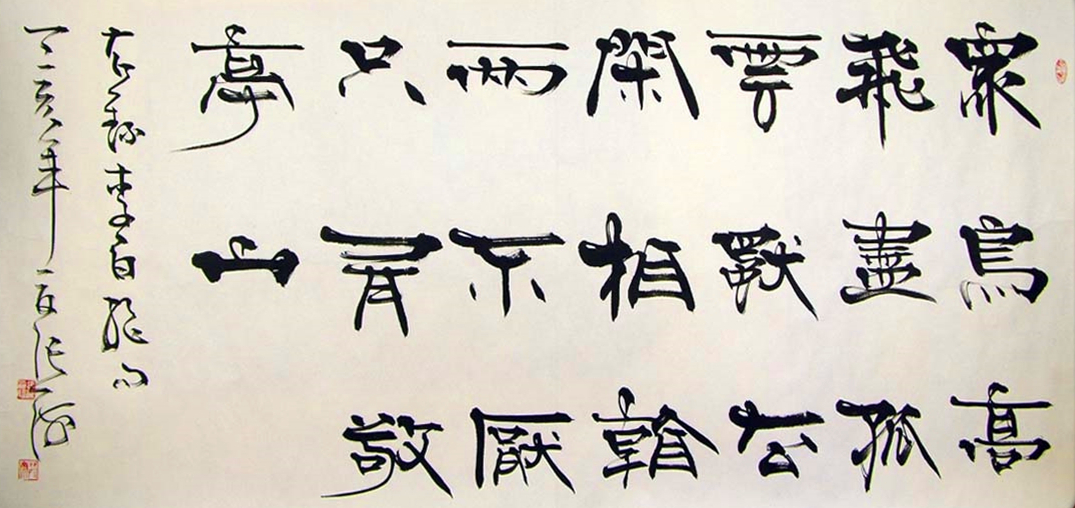 衆鳥高
飛盡孤
雲獨去
閑相看
兩不厭
只有敬
亭山
右錄李白
年